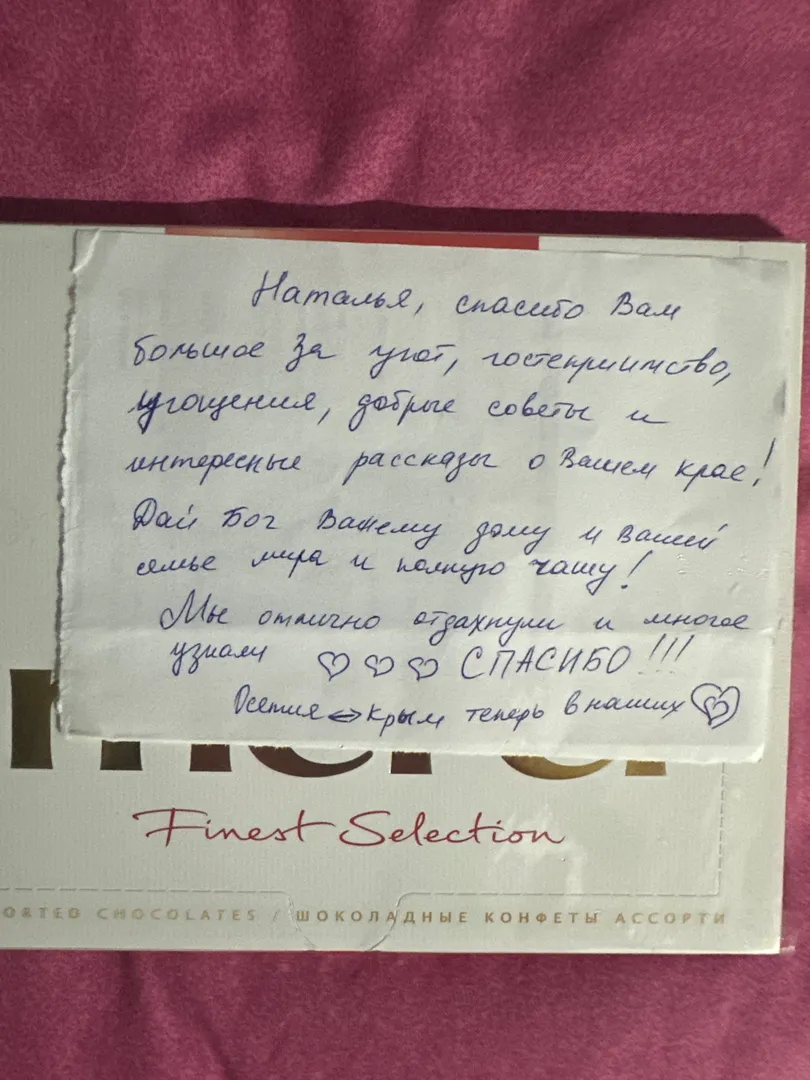 Наталья, спасибо Вам
большое за уют, гостеприимство,
угощения, добрые советы и
интересные рассказы о Вашем крае!
Дай Бог Вашему дому и Вашей
семье мира и полную чашу!
Мы отлично отдахнули и многое
узнали ♡ ♡ ♡ СПАСИБО!!!
Осетия ↔ Крым теперь в наших ♡
Finest Selection
CHOCOLATES / ШОКОЛАДНЫЕ КОНФЕТЫ АССОРТИ